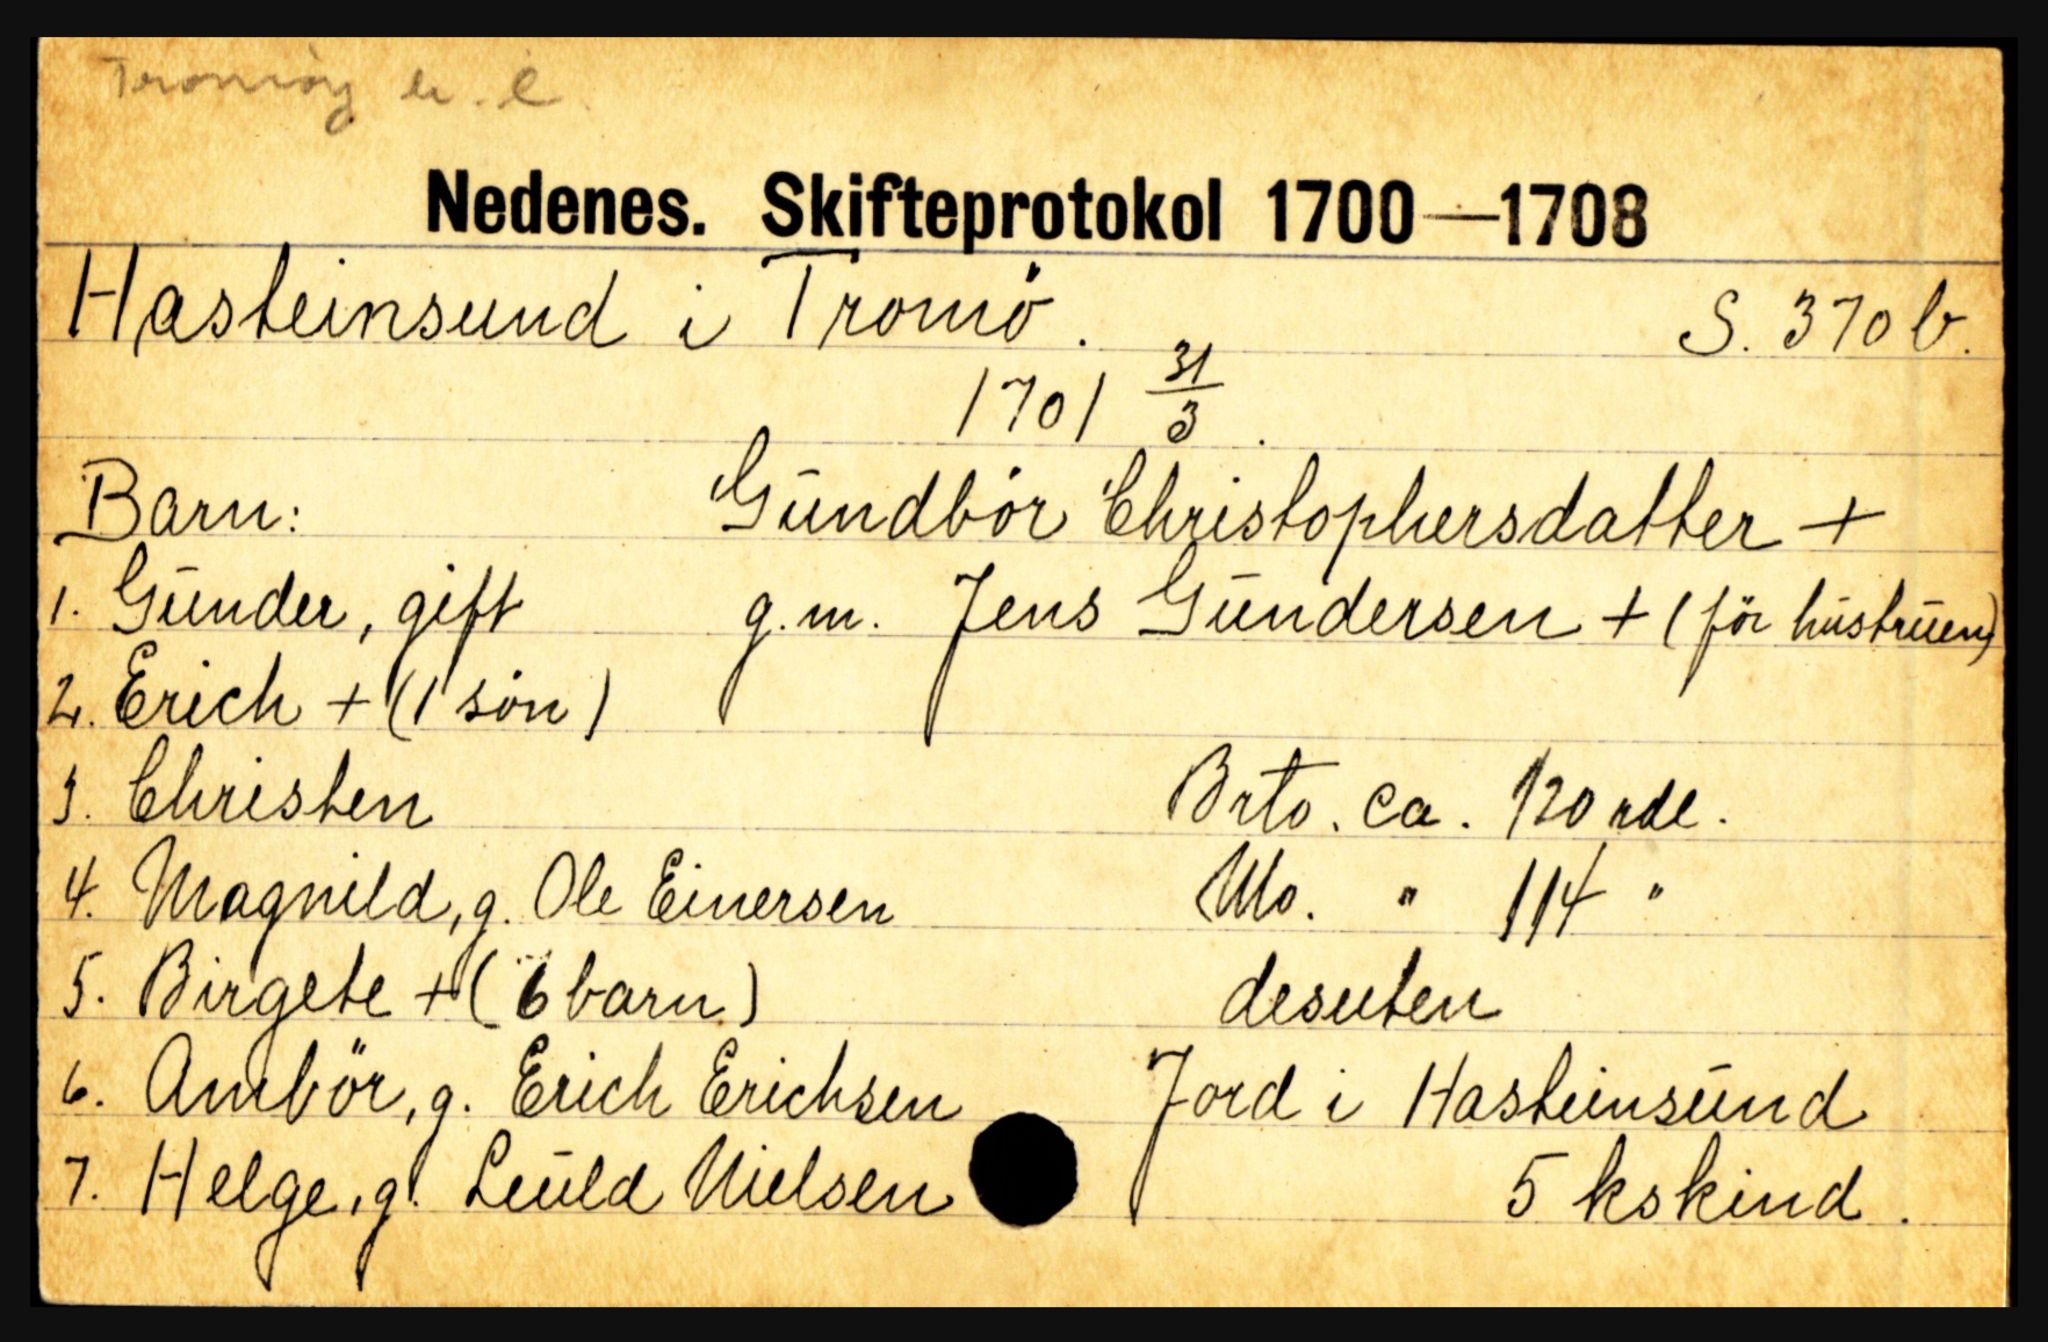 Tromøy
Nedenes. Skifteprotokol 1700—1708
Hasteinsund i Tromö. S. 370 b.
1701 31/3.
Barn: Gundbör Christophersdatter +
1. Gunder, gift g.m. Jens Gundersen + (för hustruen)
2. Erich + (1 sön)
3. Christen Brto. ca. 120 rdl.
4. Magnild, g. Ole Einersen Nto. " 114 "
5. Birgete + (6 barn) desuten
6. Anbör, g. Erich Erichsen Jord i Hasteinsund
7. Helge, g. Leuld Nielsen 5 kskind.